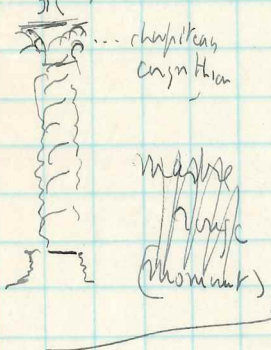 ... chapiteau
corynthien
marbre
rouge
(monument)